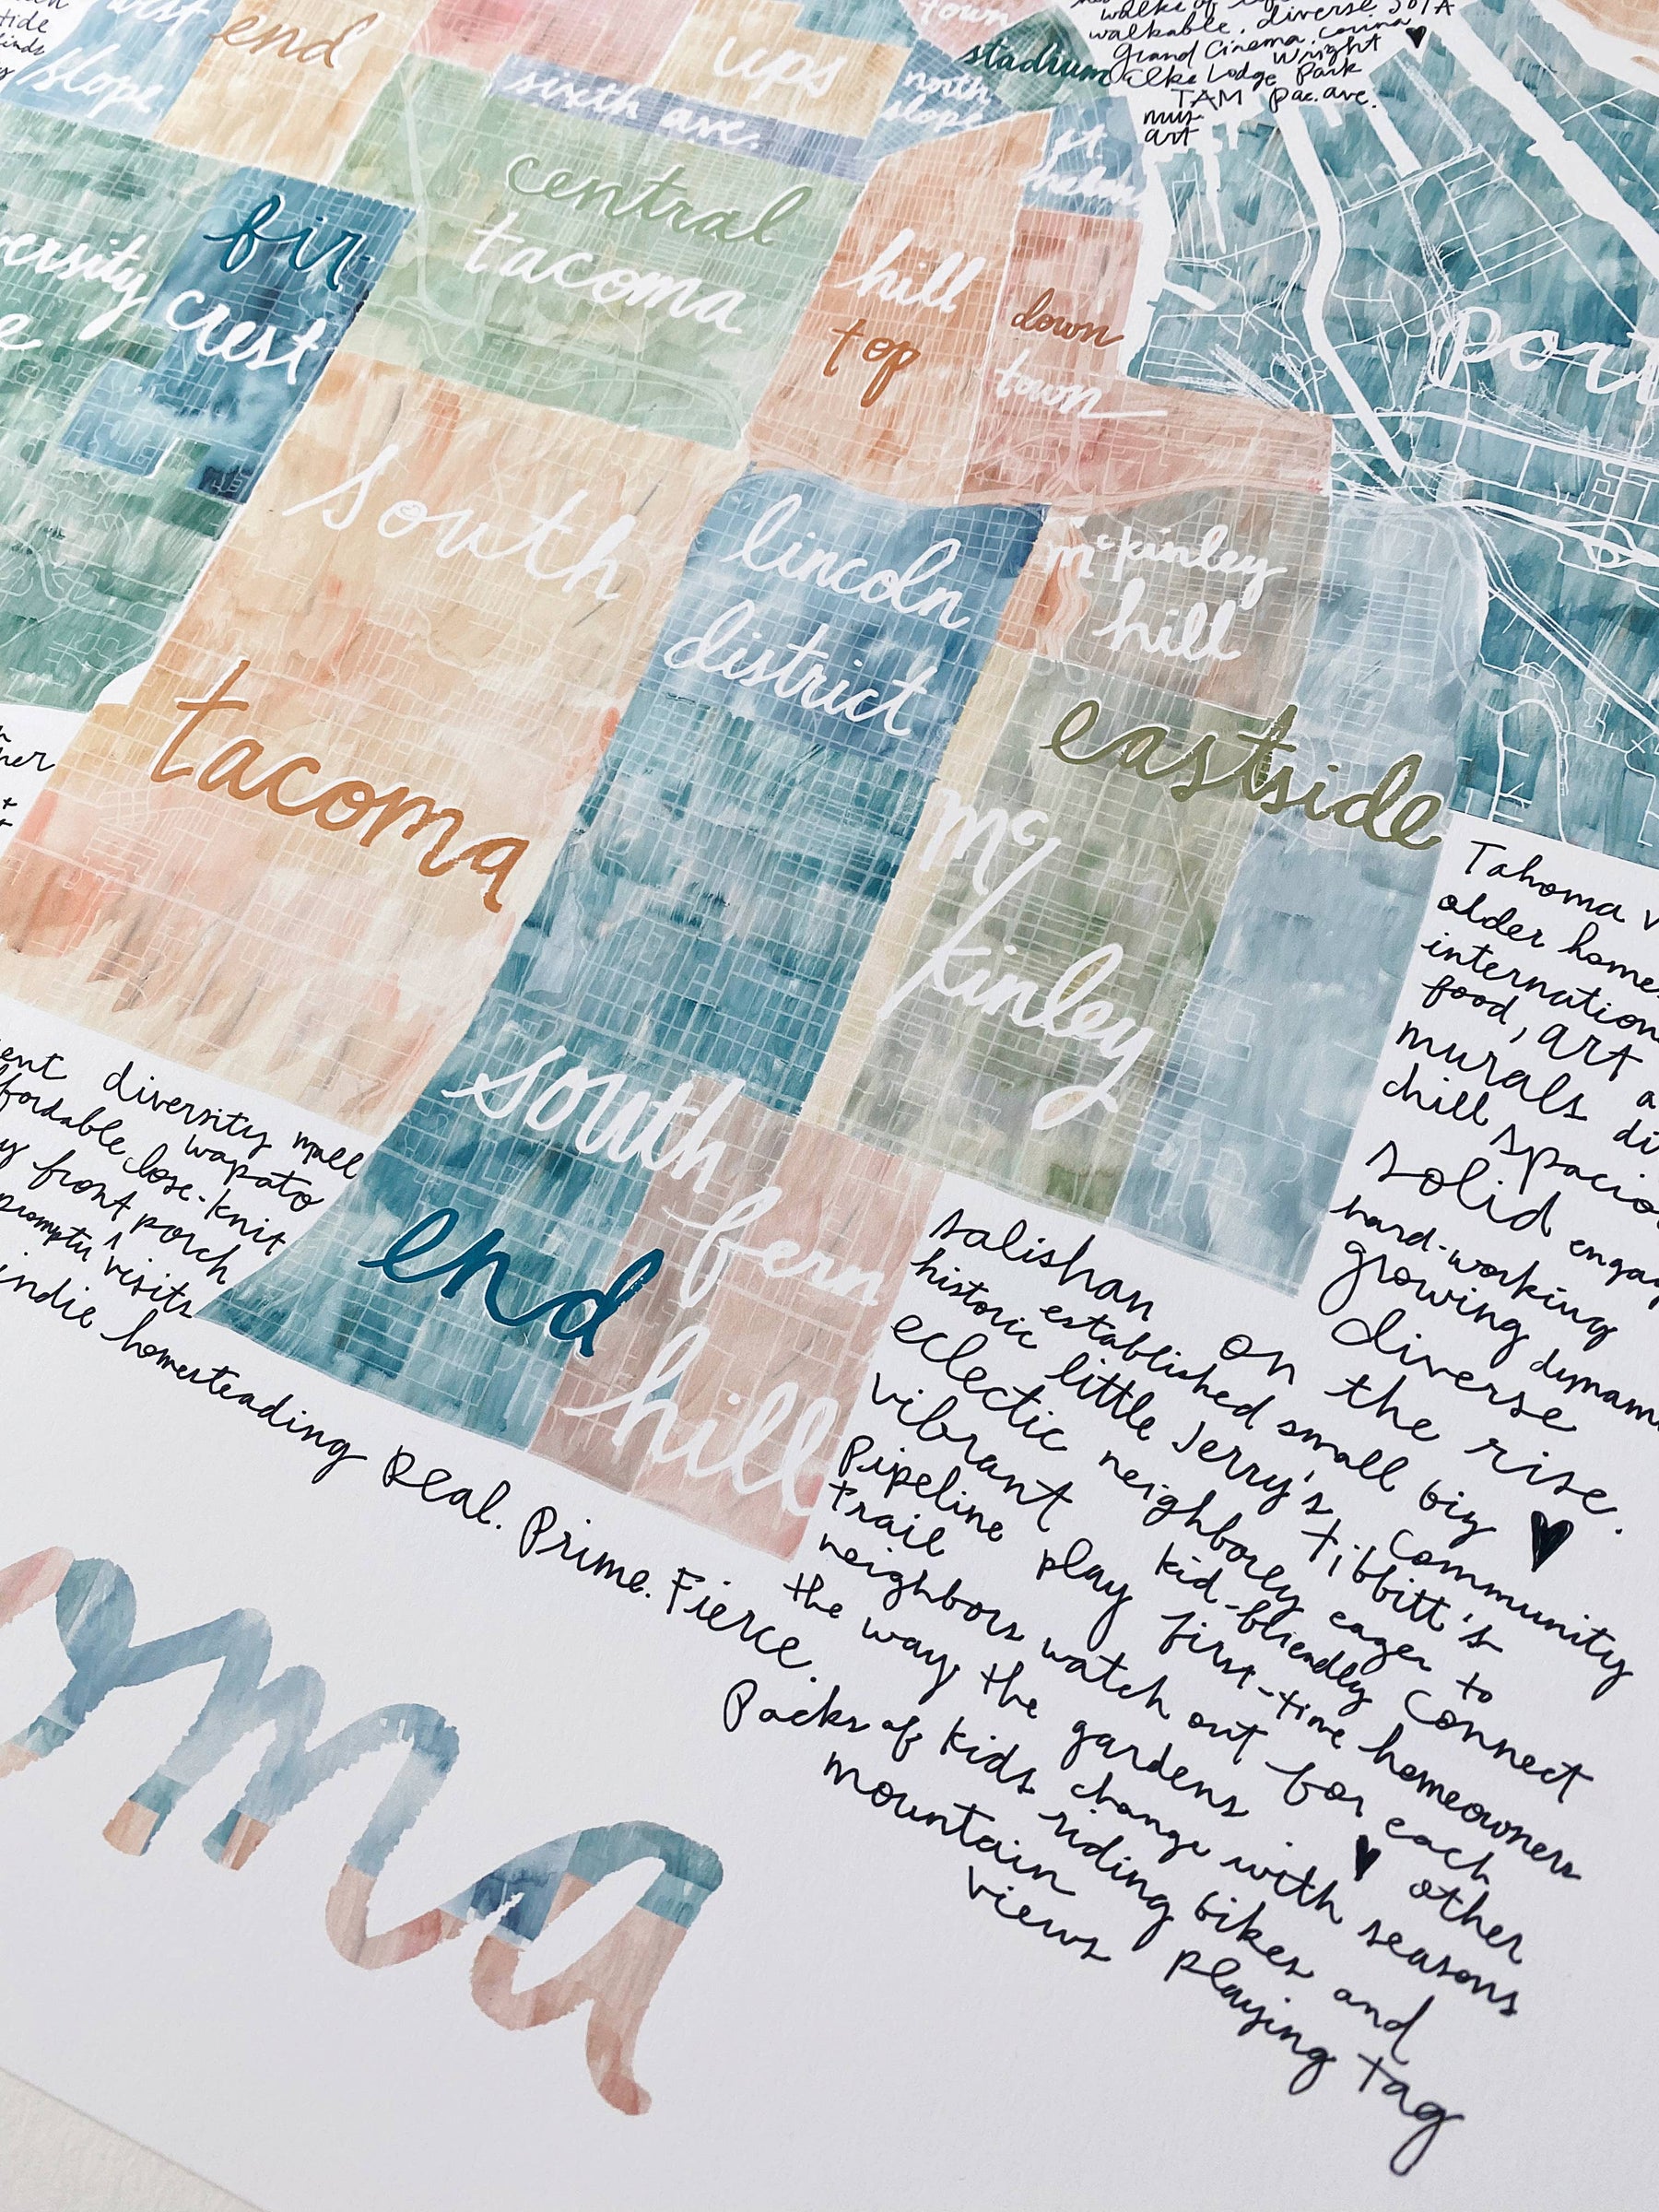 west
slope
end
ups
town
north
slope
stadium
walks of
walkable. diverse SOTA
Grand Cinema.
Wright
Elks Lodge Park
TAM pac. ave.
mus.
art
sixth ave.
st.
helens
central
tacoma
fir
crest
ersity
hill
top
down
town
port
south
tacoma
lincoln
district
mckinley
hill
eastside
mc
kinley
south
end
fern
hill
ent diversity mall
ffordable wapato
close-knit
y front porch
promptu visits
indie homesteading Real. Prime. Fierce.
Tahoma
older home
internation
food, art
murals
chill spacio
solid engag
hard-working
growing dynam
diverse
salishan on the rise.
historic established small biz ♥
eclectic little Jerry's community
vibrant neighborly Tibbitt's
Pipeline kid-friendly eager to connect
trail play first-time homeowners
neighbors watch out for each other
the way the gardens ♥
change with seasons
Packs of kids riding bikes and playing tag
mountain
views
oma